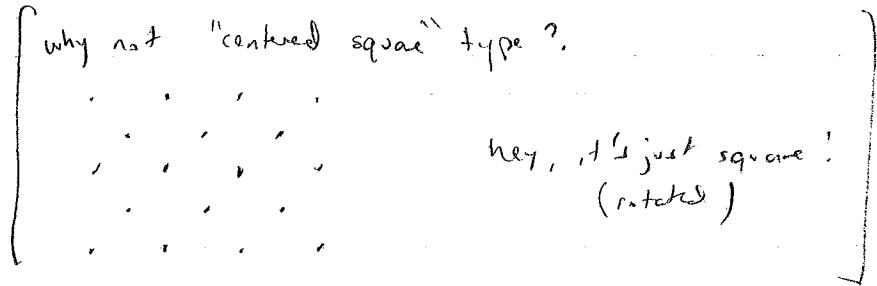 why not "centered square" type?
hey, it's just square!
(rotated)